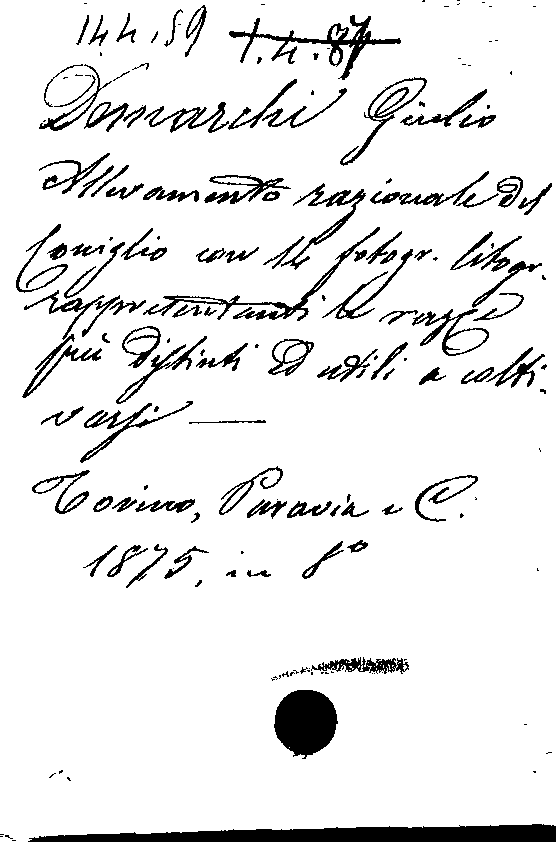 144.59 1.4.87
Demarchi Giulio
Allevamento razionale del
Coniglio con 14 fotogr. litogr.
rappresentanti le razze
più distinti ed utili a colti-
varsi —
Torino, Paravia e C.
1875, in 8º